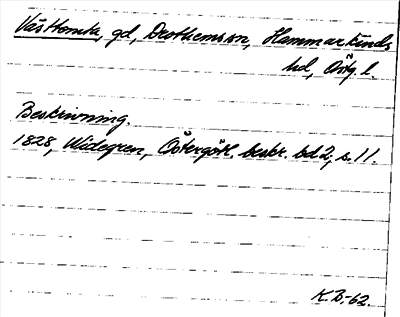 Västtomta, gd, Drothems sn, Hammarkinds
hd, Östg. l.
Beskrivning.
1828, Widegren, Östergötl. beskr. bd 2, s. 11.
K.B.-62.